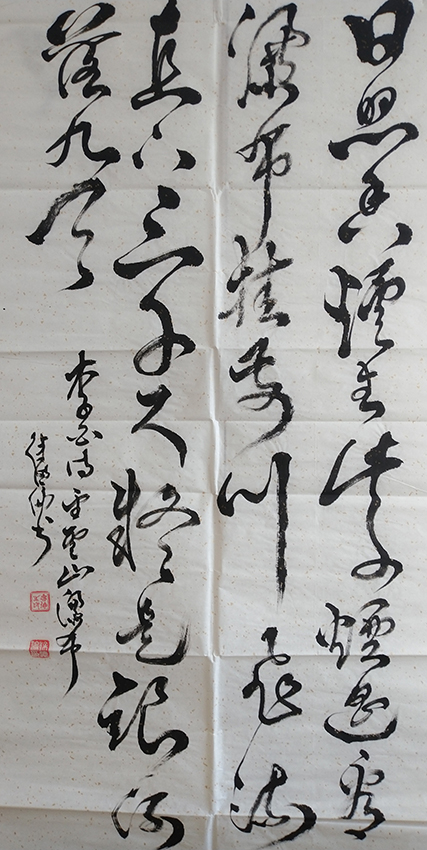 日照香爐生紫煙遥看
瀑布挂前川飛流
直下三千尺疑是銀河
落九天
李白诗望廬山瀑布